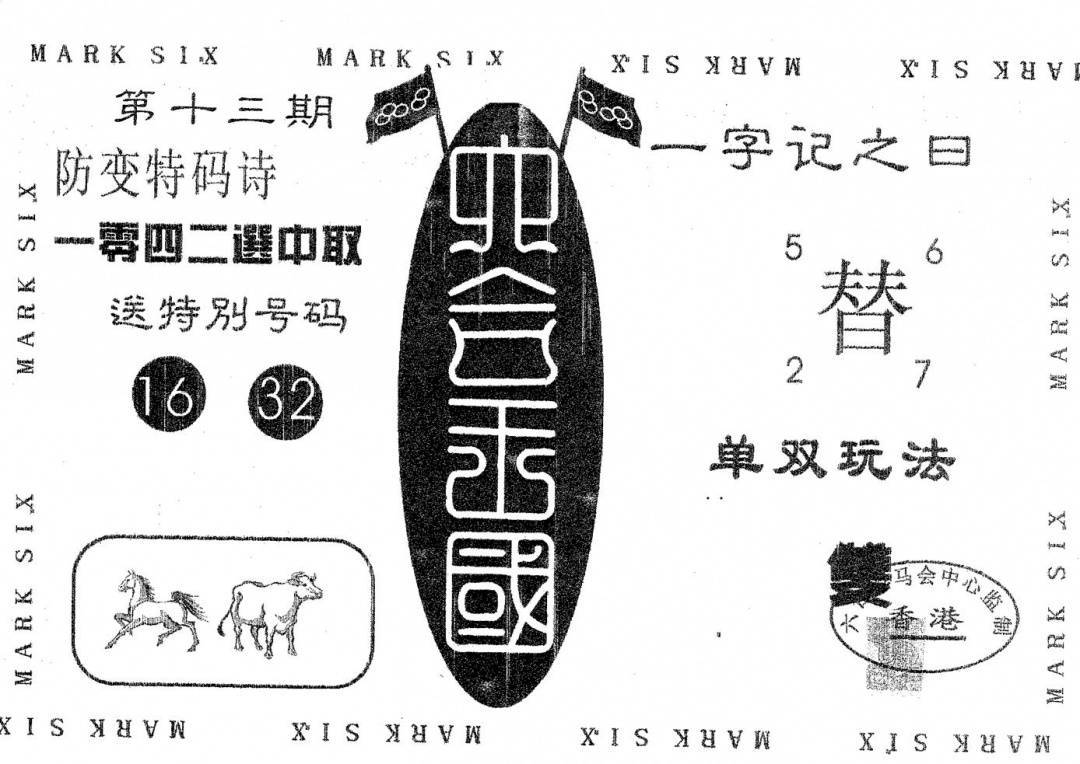 MARK SIX
MARK SIX
MARK SIX
MARK SIX
第十三期
防变特码诗
一零四二選中取
送特别号码
16 32
六合王國
一字记之曰
5 6
替
2 7
单双玩法
雙
马会中心监制
香港
MARK SIX
MARK SIX
MARK SIX
MARK SIX
MARK SIX
MARK SIX
MARK SIX
MARK SIX